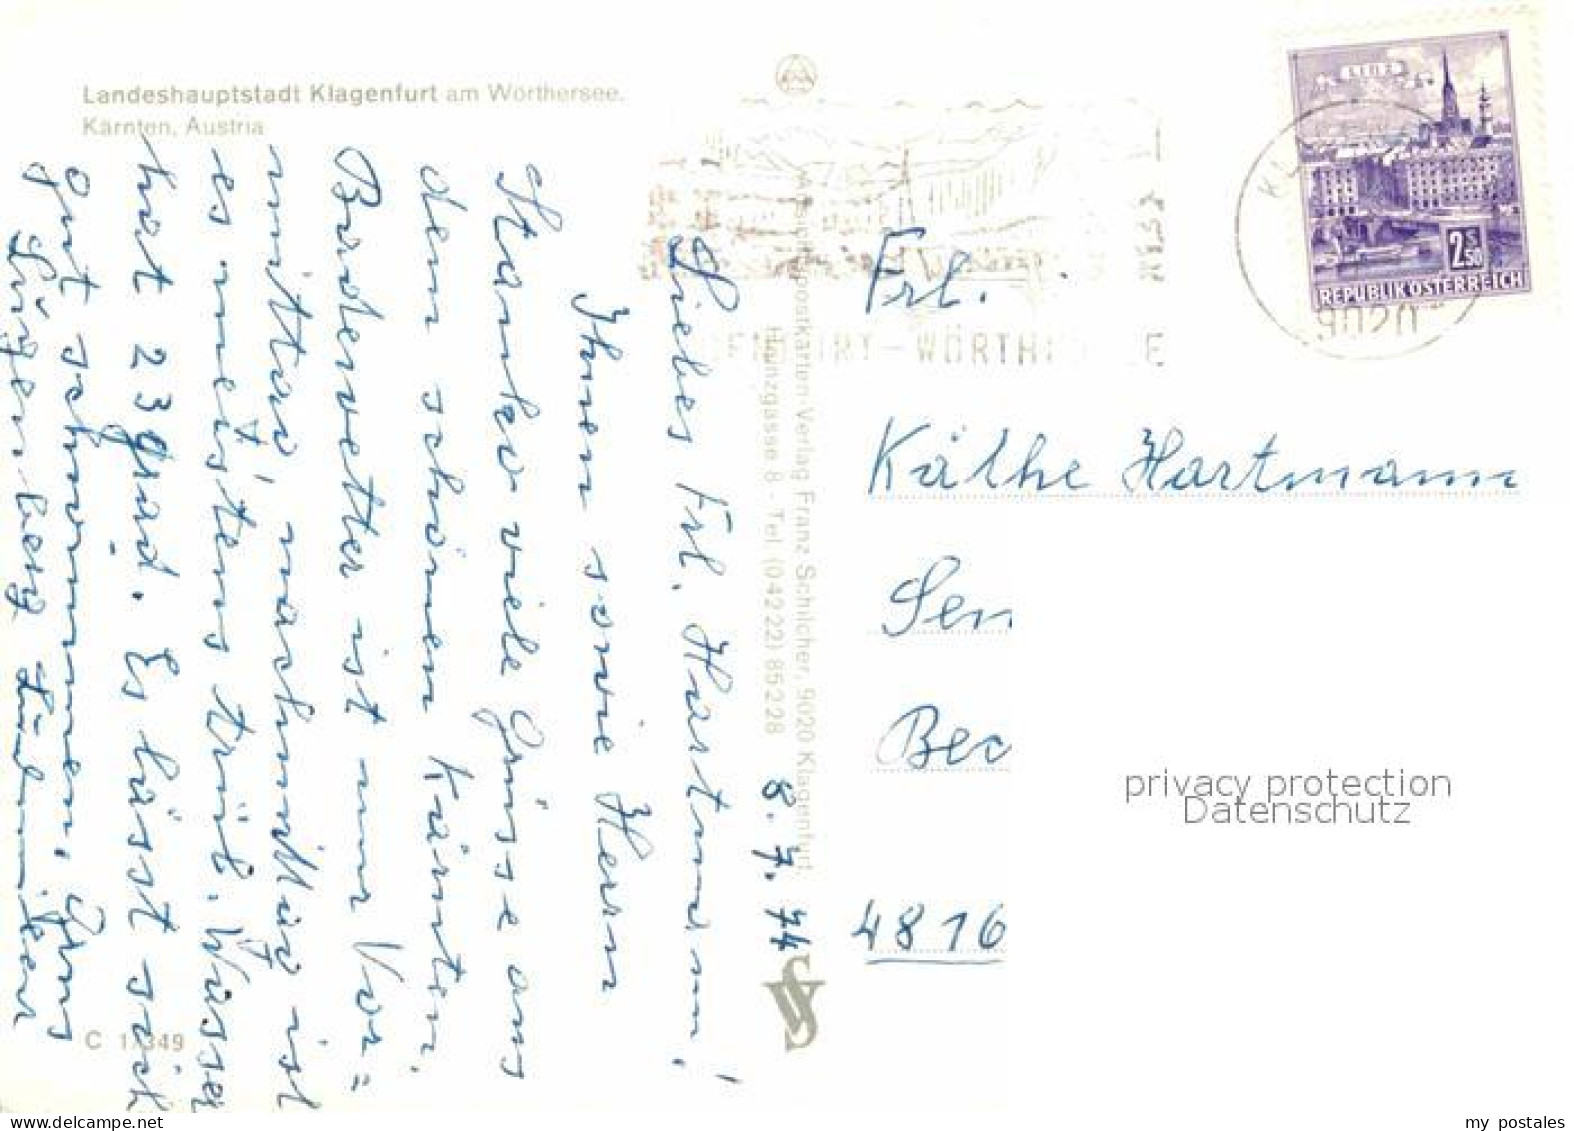 Landeshauptstadt Klagenfurt am Wörthersee.
Kärnten, Austria
8. 7. 74
Liebes Frl. Hartmann!
Ihnen sowie Herrn
viele Grüsse aus
dem schönen Kärnten.
Badewetter ist nur Vor=
mittag, nachmittag ist
es meistens trüb. Wasser
hat 23 Grad. Es lässt sich
gut schwimmen,
C 1/349
Ansichtspostkarten-Verlag Franz Schilcher, 9020 Klagenfurt
8 - Tel. (04222) 85228
LINZ
2 S 50
REPUBLIK ÖSTERREICH
9020
Frl.
Käthe Hartmann
Sen
Bec
4816
privacy protection
Datenschutz
my postales
www.delcampe.net